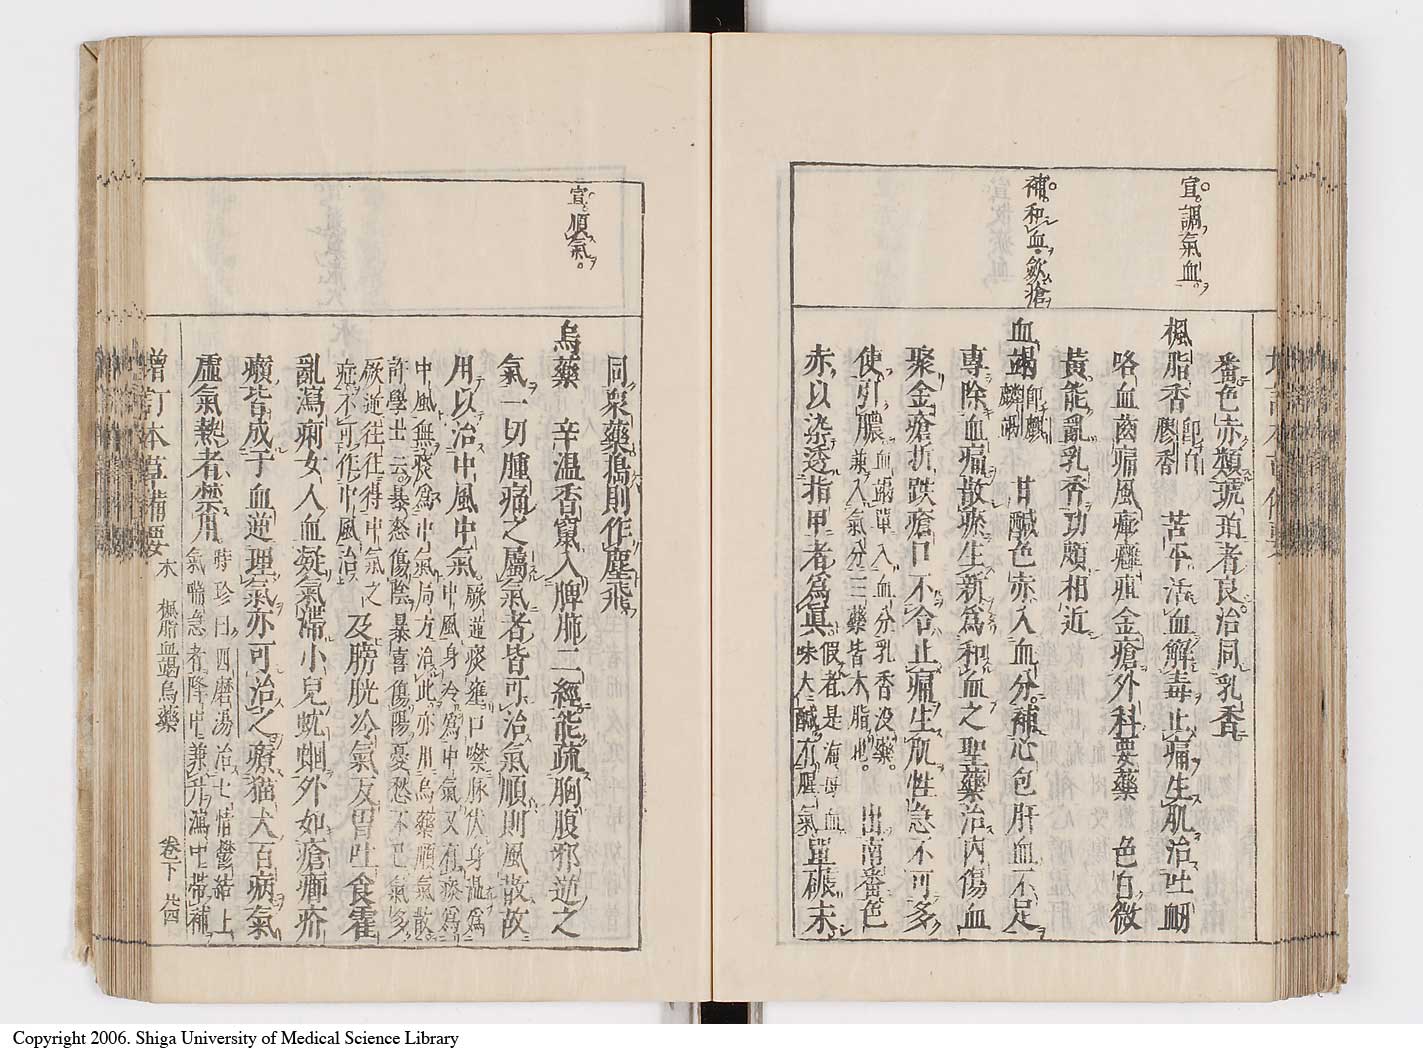 宣調氣血
補和血歛瘡
番色赤類琥珀者良治同乳香
楓脂香 即白膠香 苦平活血解毒止痛生肌治吐衂
咯血齒痛風㾴癰疽金瘡外科要藥 色白微
黃能亂乳香功頗相近
血竭 即麒麟竭 甘醎色赤入血分補心包肝血不足
專除血痛散瘀生新爲和血之聖藥治内傷血
聚金瘡折跌瘡口不合止痛生肌性急不可多
使引膿 血竭單入血分乳香没藥兼入氣分三藥皆木脂也 出南番色
赤以染透指甲者爲眞 假者是海母血味大醎有腥氣 單碾末
宣順氣
同衆藥搗則作塵飛
烏藥 辛温香竄入脾肺二經能疏胸腹邪逆之
氣一切腫痛之屬氣者皆可治氣順則風散故
用以治中風中氣 厥逆痰壅口噤脉伏身温爲中風身冷爲中氣又有痰爲
中風無痰爲中氣局方治此亦用烏藥順氣散
許學士云暴怒傷陰暴喜傷陽憂愁不已氣多
厥逆往往得中氣之症不可作中風治 及膀胱冷氣反胃吐食霍
亂瀉痢女人血凝氣滯小兒蚘蛔外如瘡癤疥
癘皆成于血逆理氣亦可治之療猫犬百病氣
虛氣熱者禁用 時珍曰四磨湯治七情鬱結上氣喘急者降中兼升瀉中帶補
增訂本草備要 木 楓脂血竭烏藥 卷下 廿四
Copyright 2006. Shiga University of Medical Science Library